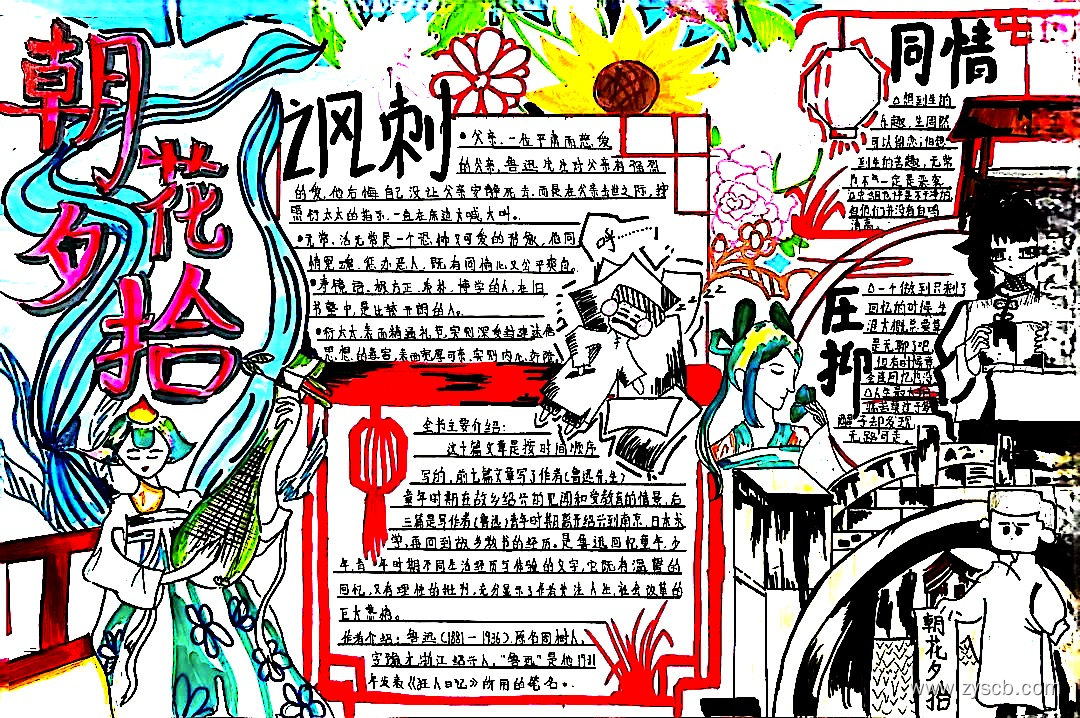 朝花夕拾
讽刺
•父亲,一位平庸而慈爱
的父亲,鲁迅先生对父亲有强烈
的爱,他后悔自己没让父亲安静死去,而是在父亲去世之际,按
照衍太太的指示,一直在床边大喊大叫。
•无常,活无常是一个恐怖又可爱的形象,他同
情冤魂,惩办恶人,既有同情心又公平爽直。
方正、质朴、博学的人,在旧
书塾中,是比较开明的人。
•衍太太,表面精通礼节,实则深
思想的毒害,表面宽厚可亲,实则内心
呼
ZZZZ
全书主要介绍:
这十篇文章是按时间顺序
写的,前七篇文章写了作者(鲁迅先生)
童年时期在故乡绍兴的见闻和受教育的情景,后
三篇是写作者(鲁迅)青年时期离开绍兴到南京、日本求
学,再回到故乡教书的经历。是鲁迅回忆童年、少
年、青年时期不同生活经历与体验的文字,它既有温馨的
回忆,又有理性的批判,充分显示了作者关注人生、社会改革的
巨大热情。
作者介绍:鲁迅(1881-1936),原名周树人,
字豫才,浙江绍兴人,“鲁迅”是他1918
年发表《狂人日记》所用的笔名。
同情
想到生的
乐趣,生固然
可以留恋;但想
到生的苦趣,无常
也不一定是恶客
但他们并没有自鸣
清高。
压抑
一个人做到只剩了
回忆的时候,生
涯大概总要算
是无聊了吧,
但有时竟会
连回忆也没
人生最大的
醒了却发现
无路可走
朝花夕拾
www.zyscb.com